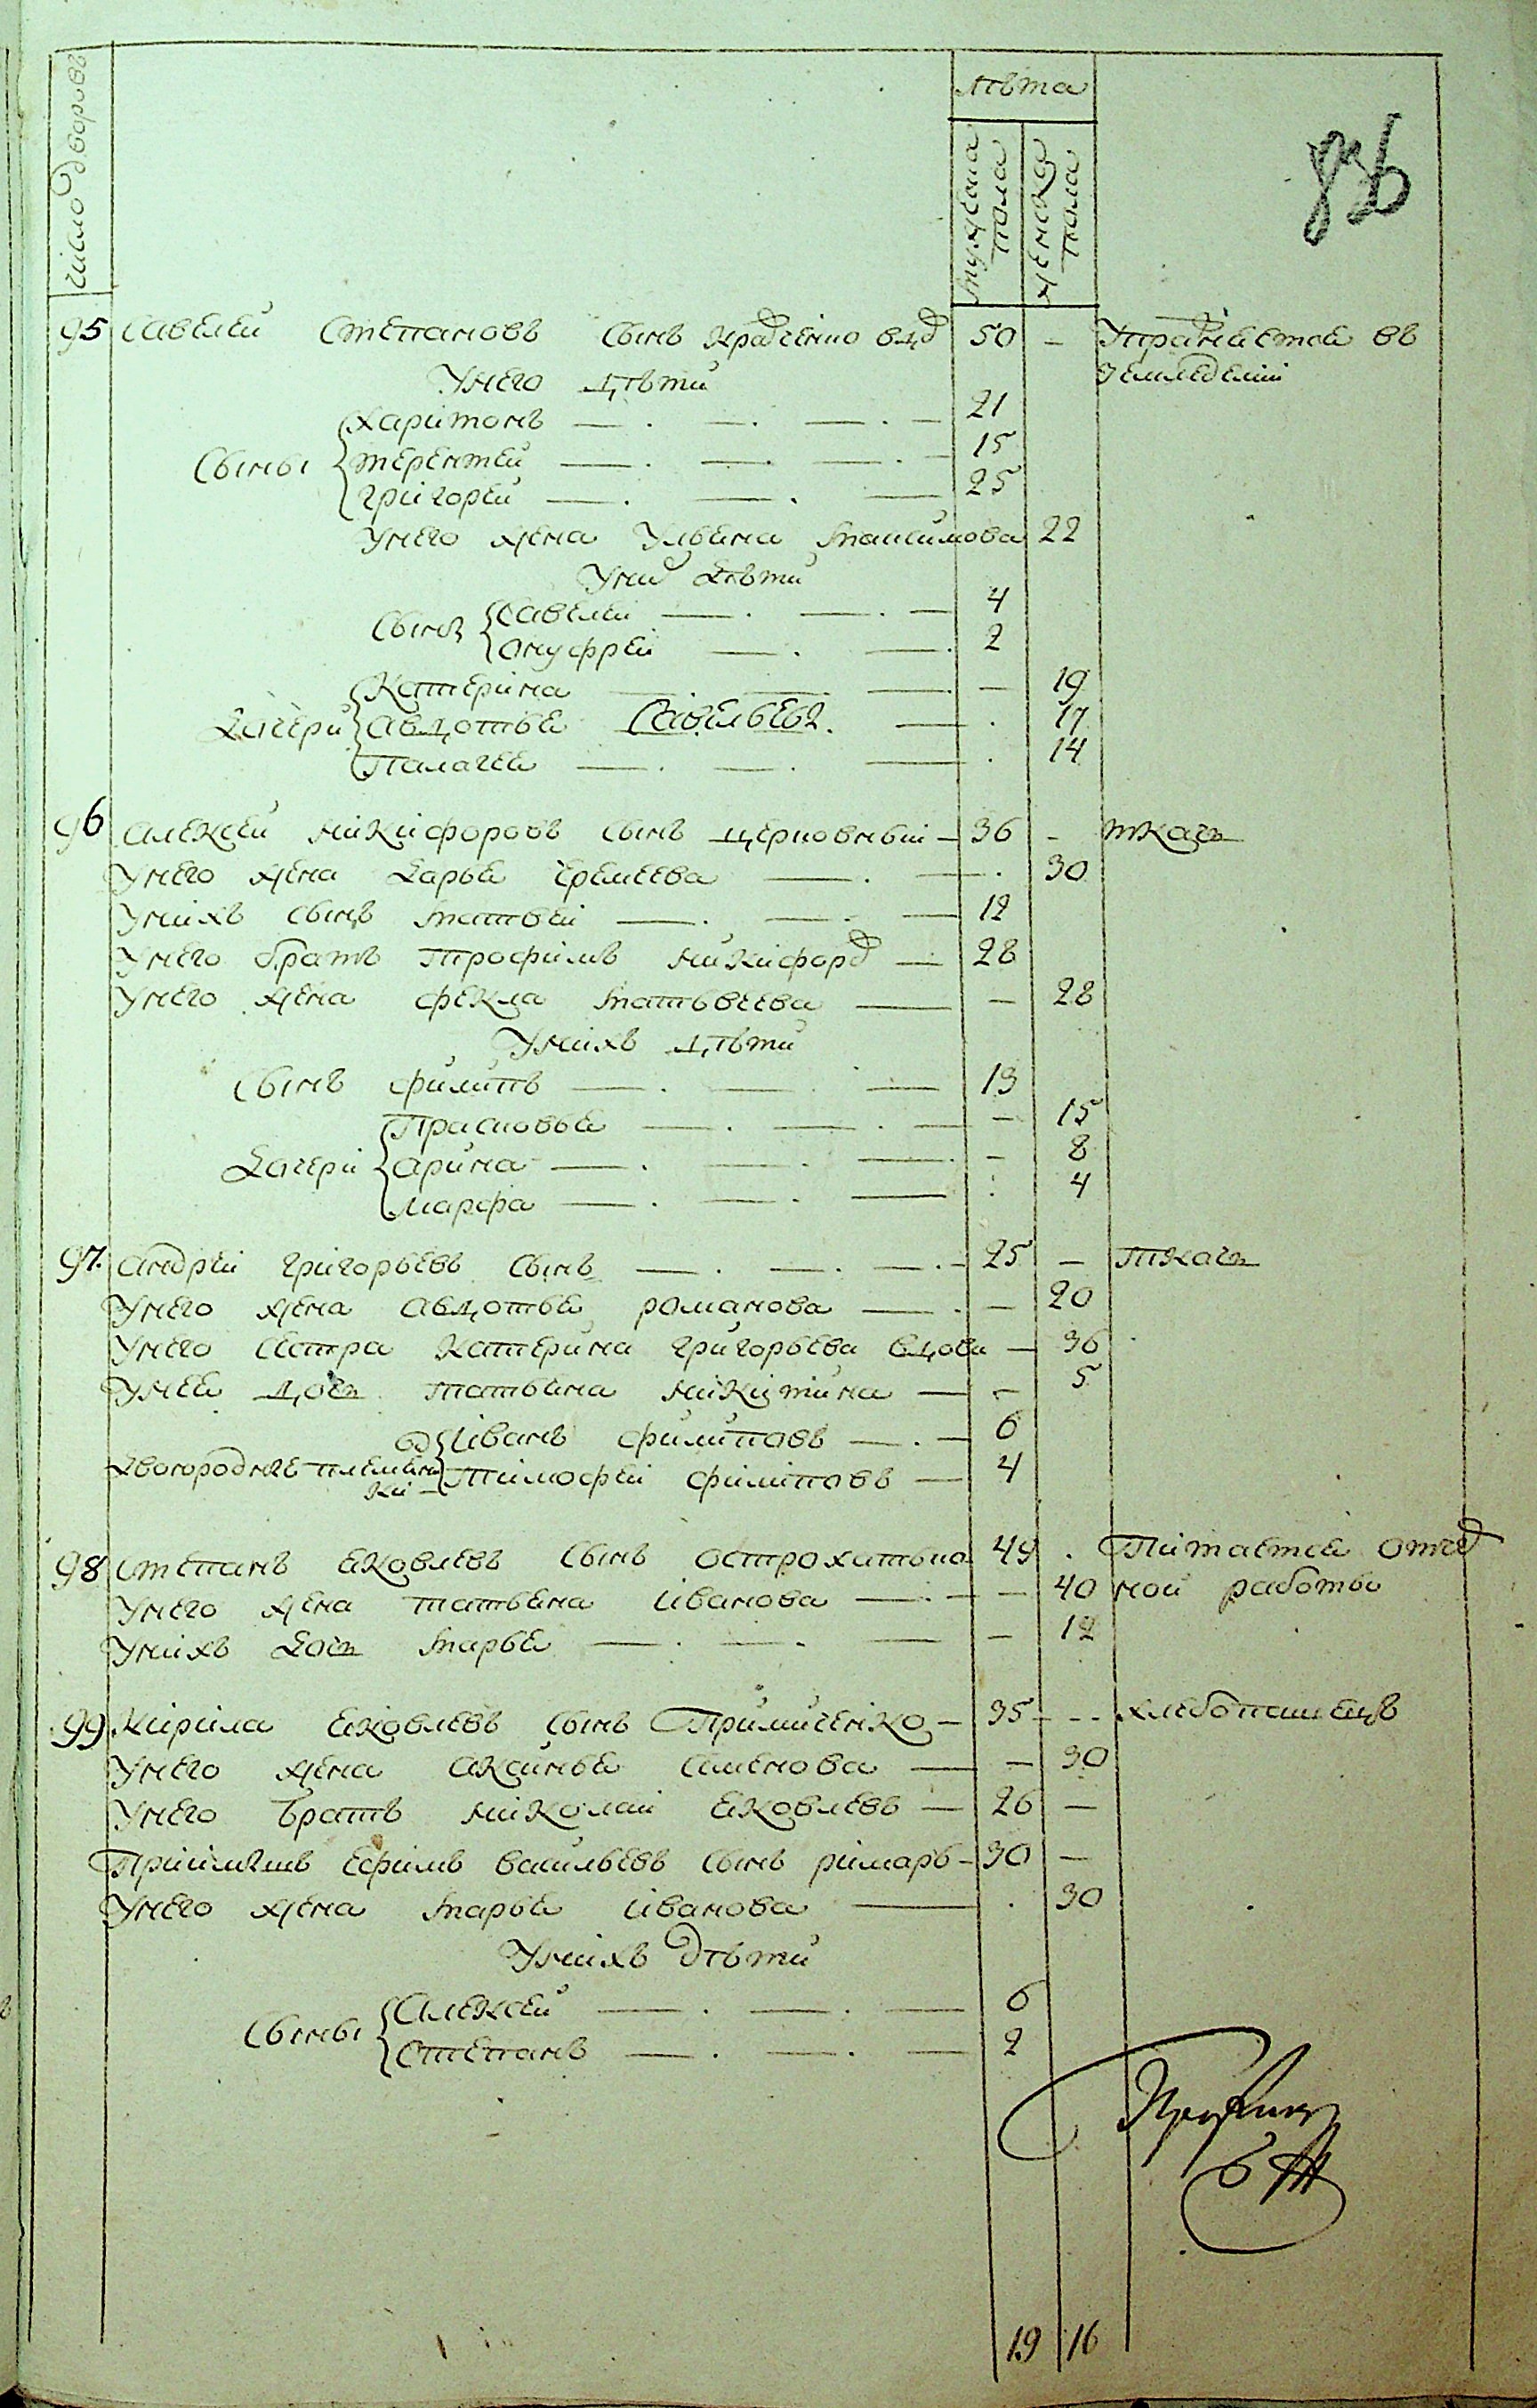 число дворовъ
лѣта
мужеска пола
женска пола
95 Савелей Степановъ сынъ вд 50 — Упражняется въ
земледелiи
Унего дѣти
Харитонъ — 21
Сыны Терентей — 15
Григорей — 25
Унего жена Ульяна Максимова 22
Уних дѣти
Савелей — 4
Онуфрей — 2
Катерина — — 19
Дочери Авдотья Савельев. 17
Палагея — 14
96 Алексей Никифоровъ сынъ — 36 — ткачь
Унего жена Дарья Еремеева — 30
Унихъ сынъ Матвей — 12
Унего братъ Трофимъ Никифоро — 28
Унего жена Фекла Матьвеева — — 28
Унихъ дѣти
Сынъ Филипъ — 13
Прасковья — — 15
Дочери Арина — — 8
Марфа — 4
97. Андрей Григорьевъ сынъ — 25 — Ткачь
Унего жена Авдотья Романова — — 20
Унего сестра Катерина Григорьева вдова — 36
Унея дочь Татьяна Никитина — — 5
Иванъ Филиповъ — 6
Двоюродные племяни
ки — Тимофей Филиповъ — 4
98 Степанъ Яковлевъ сынъ 49 . Питается
Унего жена Татьяна Иванова — — 40 ной работы
Унихъ дочь Марья — — 12
99 Кирила Яковлевъ сынъ — 35 — Хлебопашецъ
Унего жена Аксинья Семенова — — 30
Унего братъ Николай Яковлевъ — 26 —
Приймышъ Ефимъ Васильевъ сынъ римарь — 30 —
Унего жена Марья Иванова — 30
Унихъ дѣти
Сыны Алексей — 6
Степанъ — 2
19 16